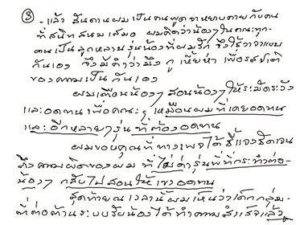 ③
- แล้ว สันดานผมเป็นคนพูดจาหยาบคายกับคน
ที่สนิทสนมเสมอ ผมคิดว่าน้องในคณะทุก
คนเป็นลูกหลานรุ่นน้องที่ผมรัก จึงใช้วาจาแบบ
กันเอง จึงมีคำว่ามึง กู เหี้ย ห่า เพื่อรสชาติ
ของความเป็นกันเอง
ผมเตือนน้องๆ สอนน้องๆ ให้ระมัดระวัง
และอดทนเพื่อคณะฯ เหมือนผมที่เคยอดทน
และอีกหลายๆ รุ่นที่ต้องอดทน
ผมขอบคุณที่ทางเพจได้ชี้แจงชัดเจน
ถึงความผิดของผม ที่ไม่ตำรุ่นพี่ที่กระทำต่อ
น้องๆ กลับไปสอนให้เขาอดทน
สุดท้ายณเวลานี้ผมเห็นว่าเด็กกลุ่ม
ที่ต่อต้านระบบรับน้องได้ทำตามสำเร็จแล้ว